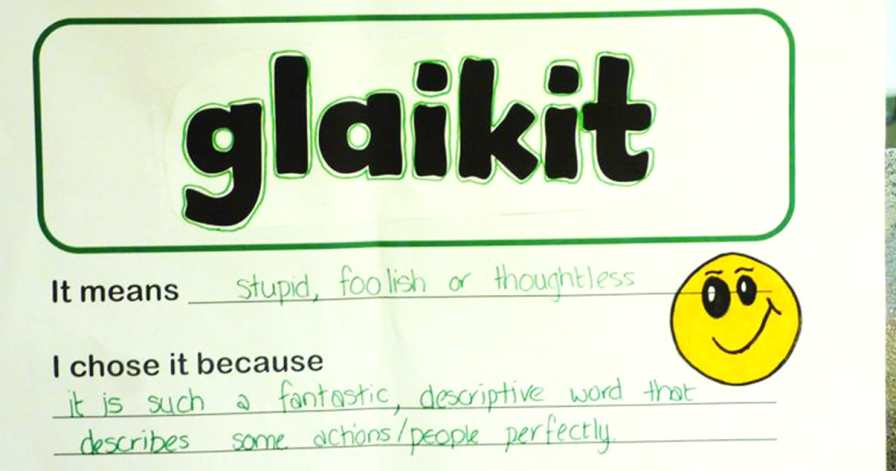 glaikit
It means stupid, foolish or thoughtless
I chose it because
it is such a fantastic, descriptive word that
describes some actions/people perfectly.